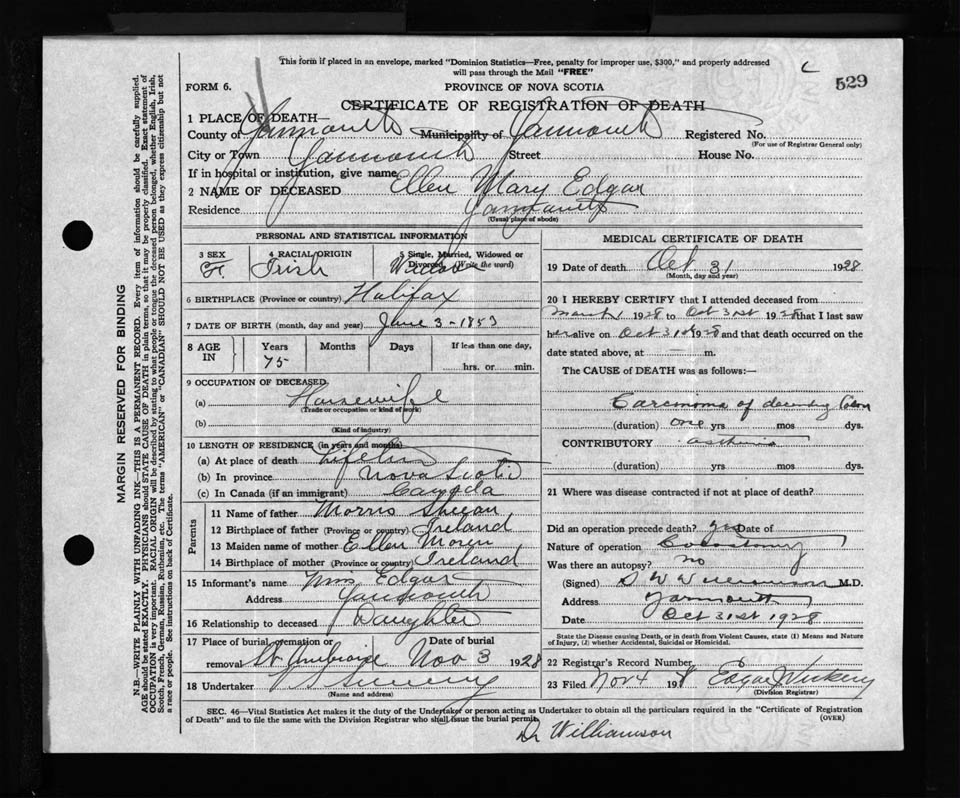 This form if placed in an envelope, marked "Dominion Statistics—Free, penalty for improper use, $300," and properly addressed
will pass through the Mail "FREE"
FORM 6.
PROVINCE OF NOVA SCOTIA
C
529
CERTIFICATE OF REGISTRATION OF DEATH
1 PLACE OF DEATH—
County of Yarmouth Municipality of Yarmouth Registered No.
(For use of Registrar General only)
City or Town Yarmouth Street House No.
If in hospital or institution, give name
2 NAME OF DECEASED Ellen Mary Edgar
Residence Yarmouth
(Usual place of abode)
PERSONAL AND STATISTICAL INFORMATION
3 SEX F. 4 RACIAL ORIGIN Irish 5 Single, Married, Widowed or Divorced (Write the word) Widow
6 BIRTHPLACE (Province or country) Halifax
7 DATE OF BIRTH (month, day and year) June 3 - 1853
8 AGE IN Years 75 Months Days If less than one day, hrs. or min.
9 OCCUPATION OF DECEASED
(a) Housewife
(Trade or occupation or kind of work)
(b)
(Kind of industry)
10 LENGTH OF RESIDENCE (in years and months)
(a) At place of death
(b) In province Nova Scotia
(c) In Canada (if an immigrant) Canada
Parents
11 Name of father Morris
12 Birthplace of father (Province or country) Ireland
13 Maiden name of mother Ellen Moren
14 Birthplace of mother (Province or country) Ireland
15 Informant's name Edgar
Address Yarmouth
16 Relationship to deceased Daughter
17 Place of burial, cremation or removal St Ambroise Date of burial Nov 3 1928
18 Undertaker
(Name and address)
MEDICAL CERTIFICATE OF DEATH
19 Date of death Oct 31 1928
(Month, day and year)
20 I HEREBY CERTIFY that I attended deceased from
March 1928 to Oct 31st 1928 that I last saw
her alive on Oct 31st 1928 and that death occurred on the
date stated above, at m.
The CAUSE of DEATH was as follows:—
Carcinoma of descending Colon
(duration) one yrs mos. dys.
CONTRIBUTORY asthma
(duration) yrs mos dys.
21 Where was disease contracted if not at place of death?
Did an operation precede death? yes Date of
Nature of operation Colostomy
Was there an autopsy? no
(Signed) S W Williamson M.D.
Address Yarmouth
Date Oct 31st 1928
State the Disease causing Death, or in death from Violent Causes, state (1) Means and Nature
of Injury, (2) whether Accidental, Suicidal or Homicidal.
22 Registrar's Record Number
23 Filed Nov 4 198 Edgar
(Division Registrar)
SEC. 46—Vital Statistics Act makes it the duty of the Undertaker or person acting as Undertaker to obtain all the particulars required in the "Certificate of Registration
of Death" and to file the same with the Division Registrar who shall issue the burial permit.
(OVER)
Dr Williamson
MARGIN RESERVED FOR BINDING
N.B.—WRITE PLAINLY WITH UNFADING INK—THIS IS A PERMANENT RECORD. Every item of information should be carefully supplied.
AGE should be stated EXACTLY. PHYSICIANS should STATE CAUSE OF DEATH in plain terms, so that it may be properly classified. Exact statement of
OCCUPATION is very important. RACIAL ORIGIN will be described by stating to what people or tongue the deceased person belonged, whether English, Irish,
Scotch, French, German, Russian, Ruthenian, etc. The terms "AMERICAN" or "CANADIAN" SHOULD NOT BE USED as they express citizenship but not
a race or people. See instructions on back of Certificate.